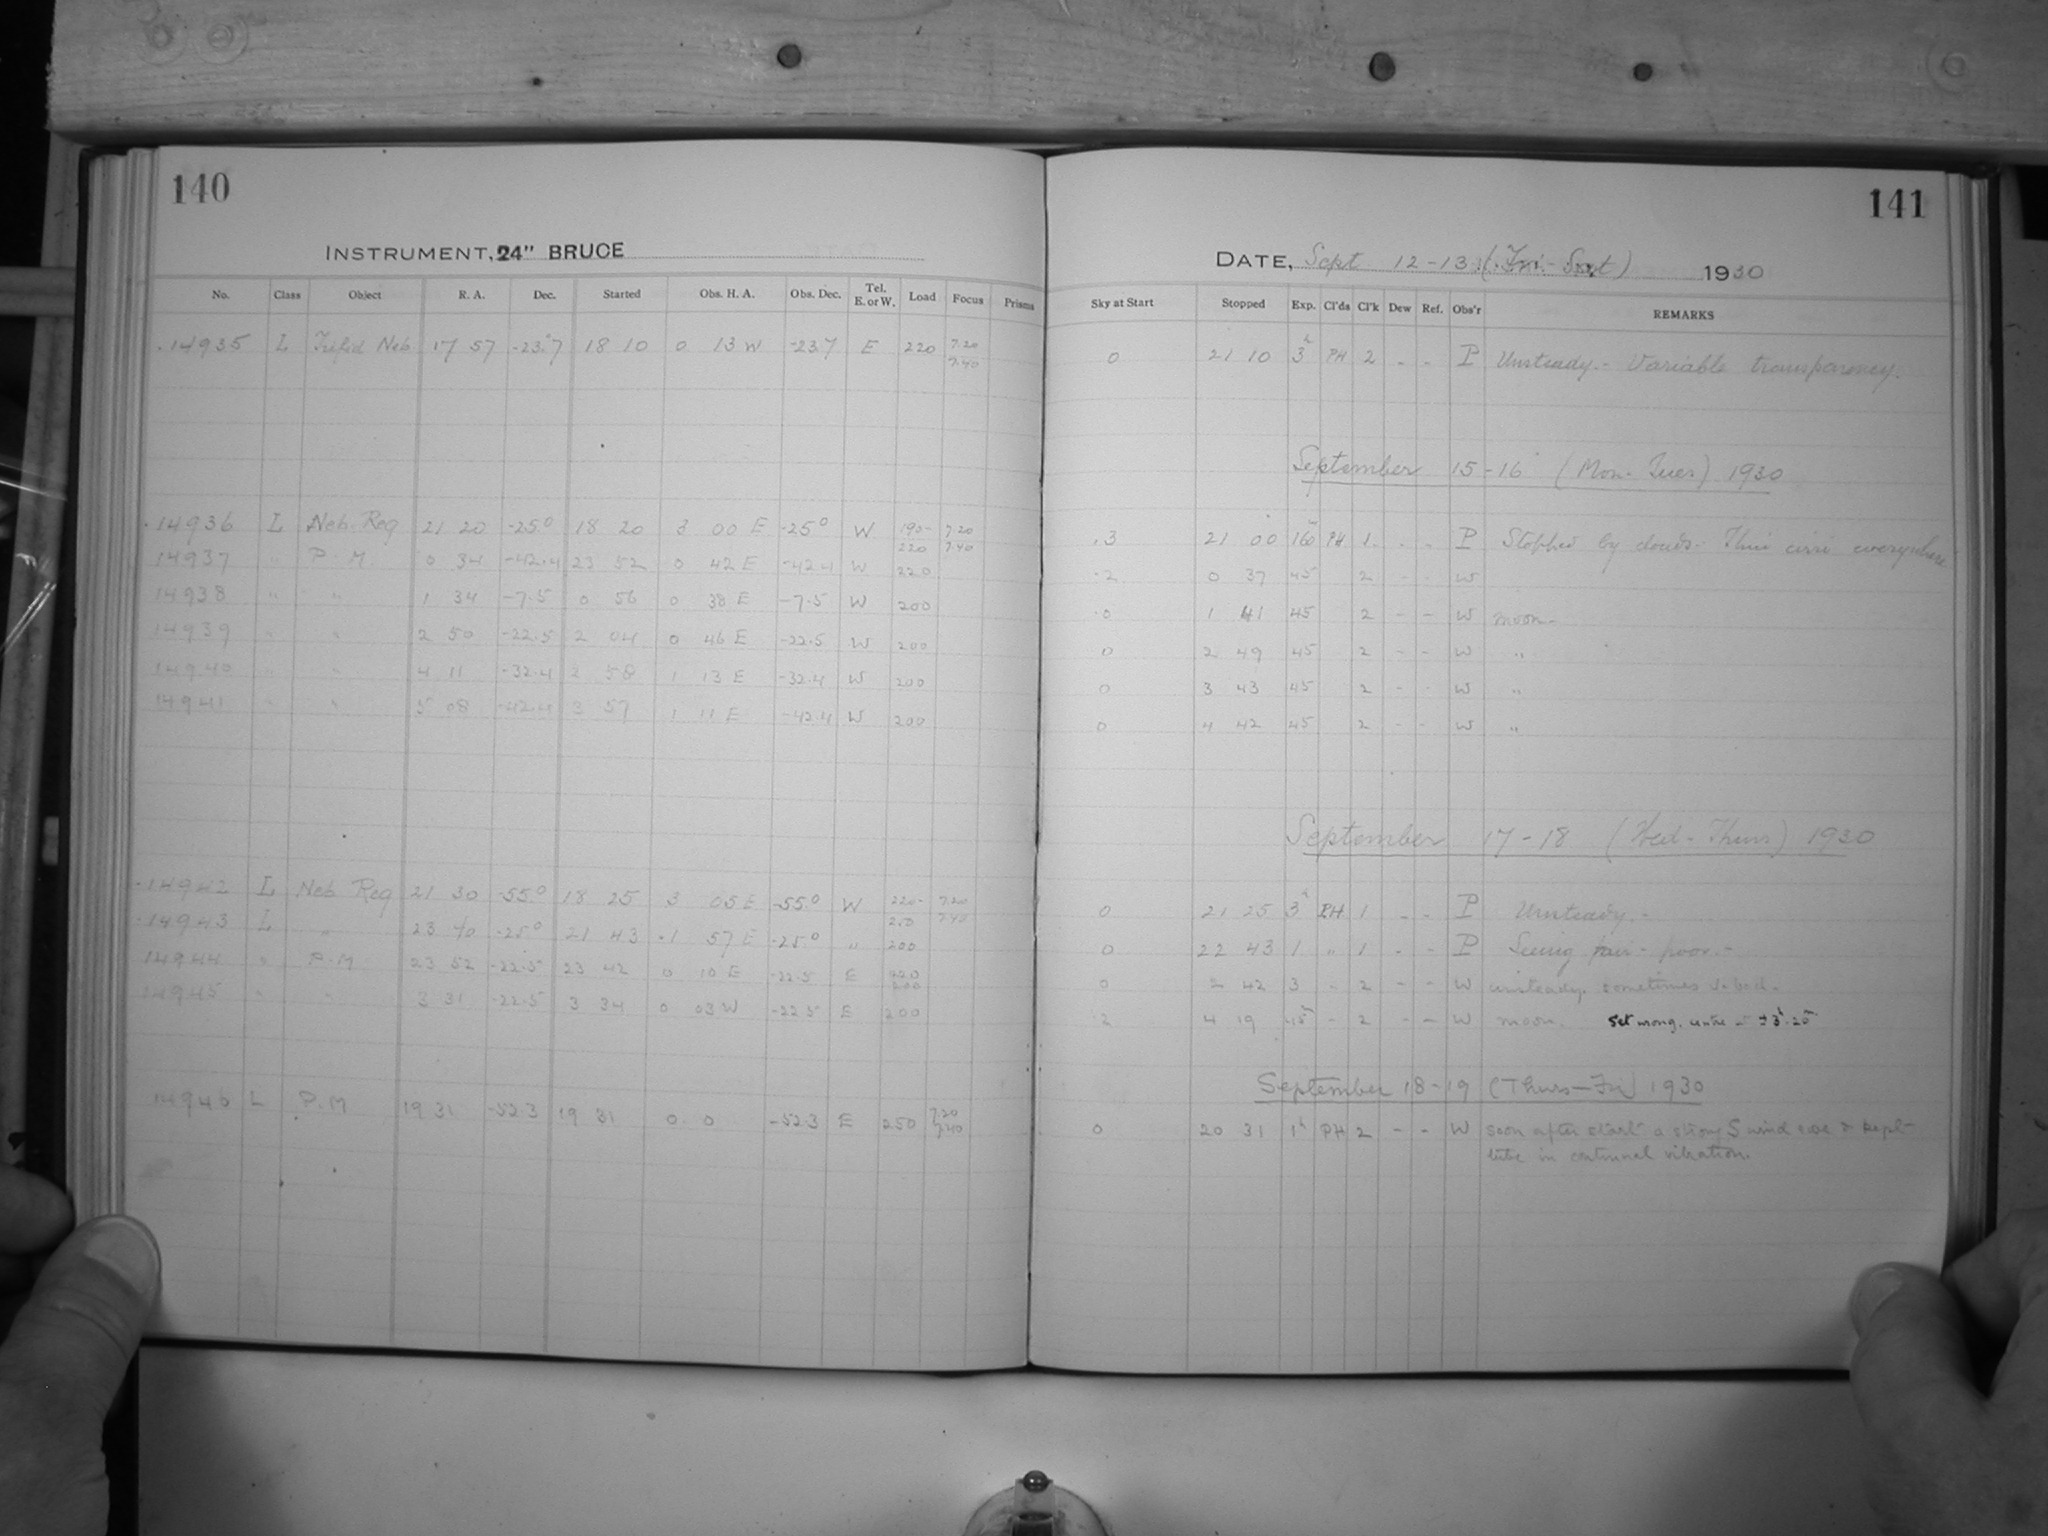 140
INSTRUMENT, 24" BRUCE
No. Class Object R. A. Dec. Started Obs. H. A. Obs. Dec. Tel. E. or W. Load Focus Prisms
14935 L Trifid Neb 17 57 -23.7 18 10 0 13 W -23.7 E 220 7.20 7.40
14936 L Neb. Reg 21 20 -25.0 18 20 3 00 E -25.0 W 190- 220 7.20 7.40
14937 " P.M. 0 34 -42.4 23 52 0 42 E -42.4 W 220
14938 " " 1 34 -7.5 0 56 0 38 E -7.5 W 200
14939 " " 2 50 -22.5 2 04 0 46 E -22.5 W 200
14940 " " 4 11 -32.4 2 58 1 13 E -32.4 W 200
14941 " " 5 08 -42.4 3 57 1 11 E -42.4 W 200
14942 L Neb Reg 21 30 -55.0 18 25 3 05 E -55.0 W 220- 7.20 7.40
14943 L " 23 40 -25.0 21 43 1 57 E -25.0 " 200
14944 " P.M 23 52 -22.5 23 42 0 10 E -22.5 E 220 200
14945 " " 3 31 -22.5 3 34 0 03 W -22.5 E 200
14946 L P.M 19 31 -52.3 19 31 0 0 -52.3 E 250 7.20 7.40
141
DATE, Sept 12-13 (Fri.-Sat) 1930
Sky at Start Stopped Exp. Cl'ds Cl'k Dew Ref. Obs'r REMARKS
0 21 10 3h PH 2 - - P Unsteady.- Variable transparency.
September 15-16 (Mon-Tues) 1930
.3 21 00 160m PH 1 - - P Stopped by clouds. Thin cirri everywhere
.2 0 37 45 2 - - W
0 1 41 45 2 - - W moon-
0 2 49 45 2 - - W "
0 3 43 45 2 - - W "
0 4 42 45 2 - - W "
September 17-18 (Wed-Thurs) 1930
0 21 25 3h PH 1 - - P Unsteady.-
0 22 43 1 " 1 - - P Seeing fair - poor.-
0 2 42 3 - 2 - - W unsteady. sometimes v. bad-
.2 4 19 45m - 2 - - W moon. Set wrong. centre
September 18-19 (Thurs-Fri) 1930
0 20 31 1h PH 2 - - W soon after start a strong S wind rose & kept
tube in continual vibration.